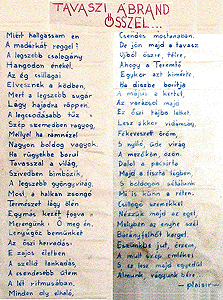 TAVASZI ÁBRÁND
ŐSSZEL...
Miért hallgassam én
A madárkát reggel?
A legszebb csalogány
Hangodon énekel,
Az ég csillagai
Elvesznek a ködben,
Mert a legszebb sugár
Lágy hajadra röppen.
A legcsodásabb tűz
Szép szemedben ragyog,
Mellyel ha rámnézel
Nagyon boldog vagyok.
Ha rügyekbe borul
Tavasszal a világ,
Szivedben bimbózik,
A legszebb gyöngyvirág,
Most, a halkan zsongó
Természet lágy ölén
Egymás kezét fogva
Merengünk: Ő meg én.
Lenyügöz bennünket
Az őszi hervadás,
E zajos életben
A szelid lankadás,
A csendesülő ütem
A lét ritmusában.
Minden oly áhitat,
Csendes mozlanában.
De jön majd a tavasz
Ujból észre, félre,
Ahogy a Teremtő
Egykor azt kimérte,
Ha díszbe borítja
A májusi a kertet,
Az varázsol majd
Ez őszi tájba lelket.
Lesz akkor vidámság,
Fékeveszett öröm,
S nyíló üde virág
A mezőkön,
Hol a pacsirta
Majd a tiszta légben
S boldogon sétálunk
Mi is kéz a kézben.
Csillogó szemekkel
Nézzük majd az eget
Melyben az enyhe szél
Bárányfelhőt kerget.
Eszünkbe jut, érzem,
A mult szép emlékei
S ez lesz majd egyedül
Álmunk vagyunk béke.